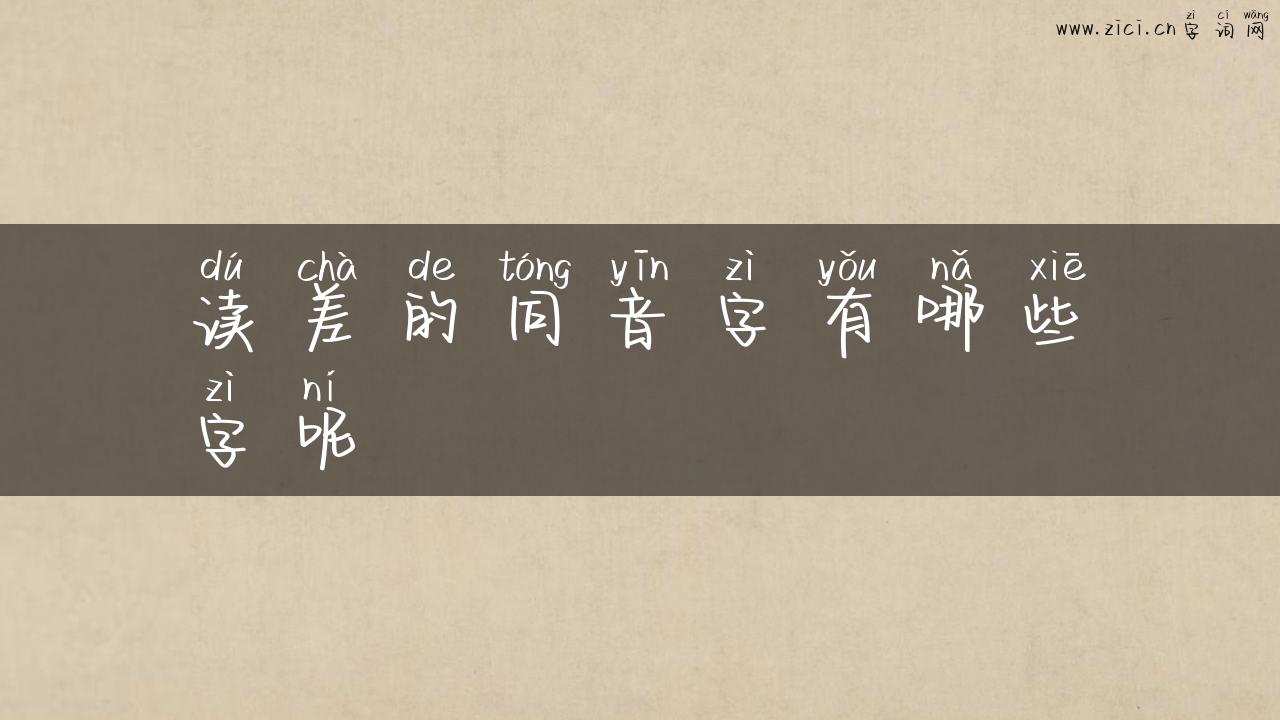 zì cí wǎng
www.zici.cn 字词网
dú chà de tóng yīn zì yǒu nǎ xiē
读差的同音字有哪些
zì ní
字呢